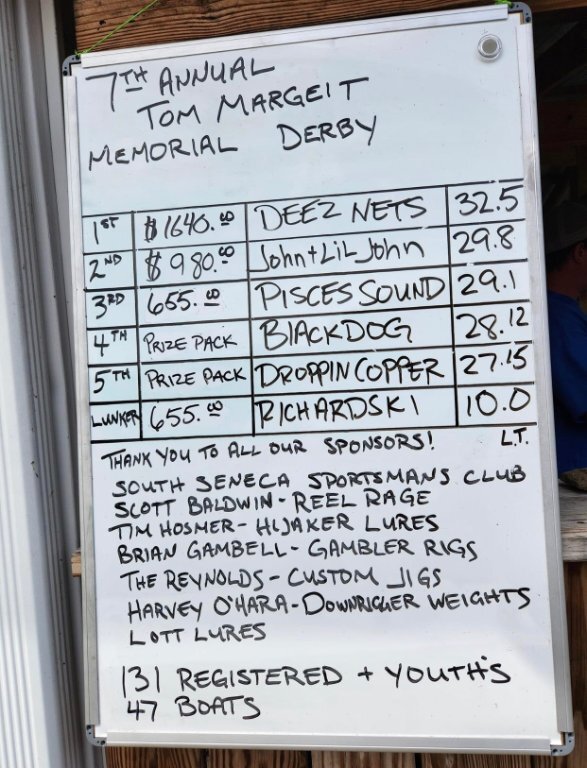 7TH ANNUAL
TOM MARGEIT
MEMORIAL DERBY
1ST $1640.00 DEEZ NETS 32.5
2ND $980.00 John + LiL John 29.8
3RD 655.00 PISCES SOUND 29.1
4TH PRIZE PACK BLACKDOG 28.12
5TH PRIZE PACK DROPPIN COPPER 27.15
LUNKER 655.00 RICHARDSKI 10.0
L.T.
THANK YOU TO ALL OUR SPONSORS!
SOUTH SENECA SPORTSMANS CLUB
SCOTT BALDWIN - REEL RAGE
TIM HOSMER - HIJAKER LURES
BRIAN GAMBELL - GAMBLER RIGS
THE REYNOLDS - CUSTOM JIGS
HARVEY O'HARA - DOWNRIGGER WEIGHTS
LOTT LURES
131 REGISTERED + YOUTH'S
47 BOATS